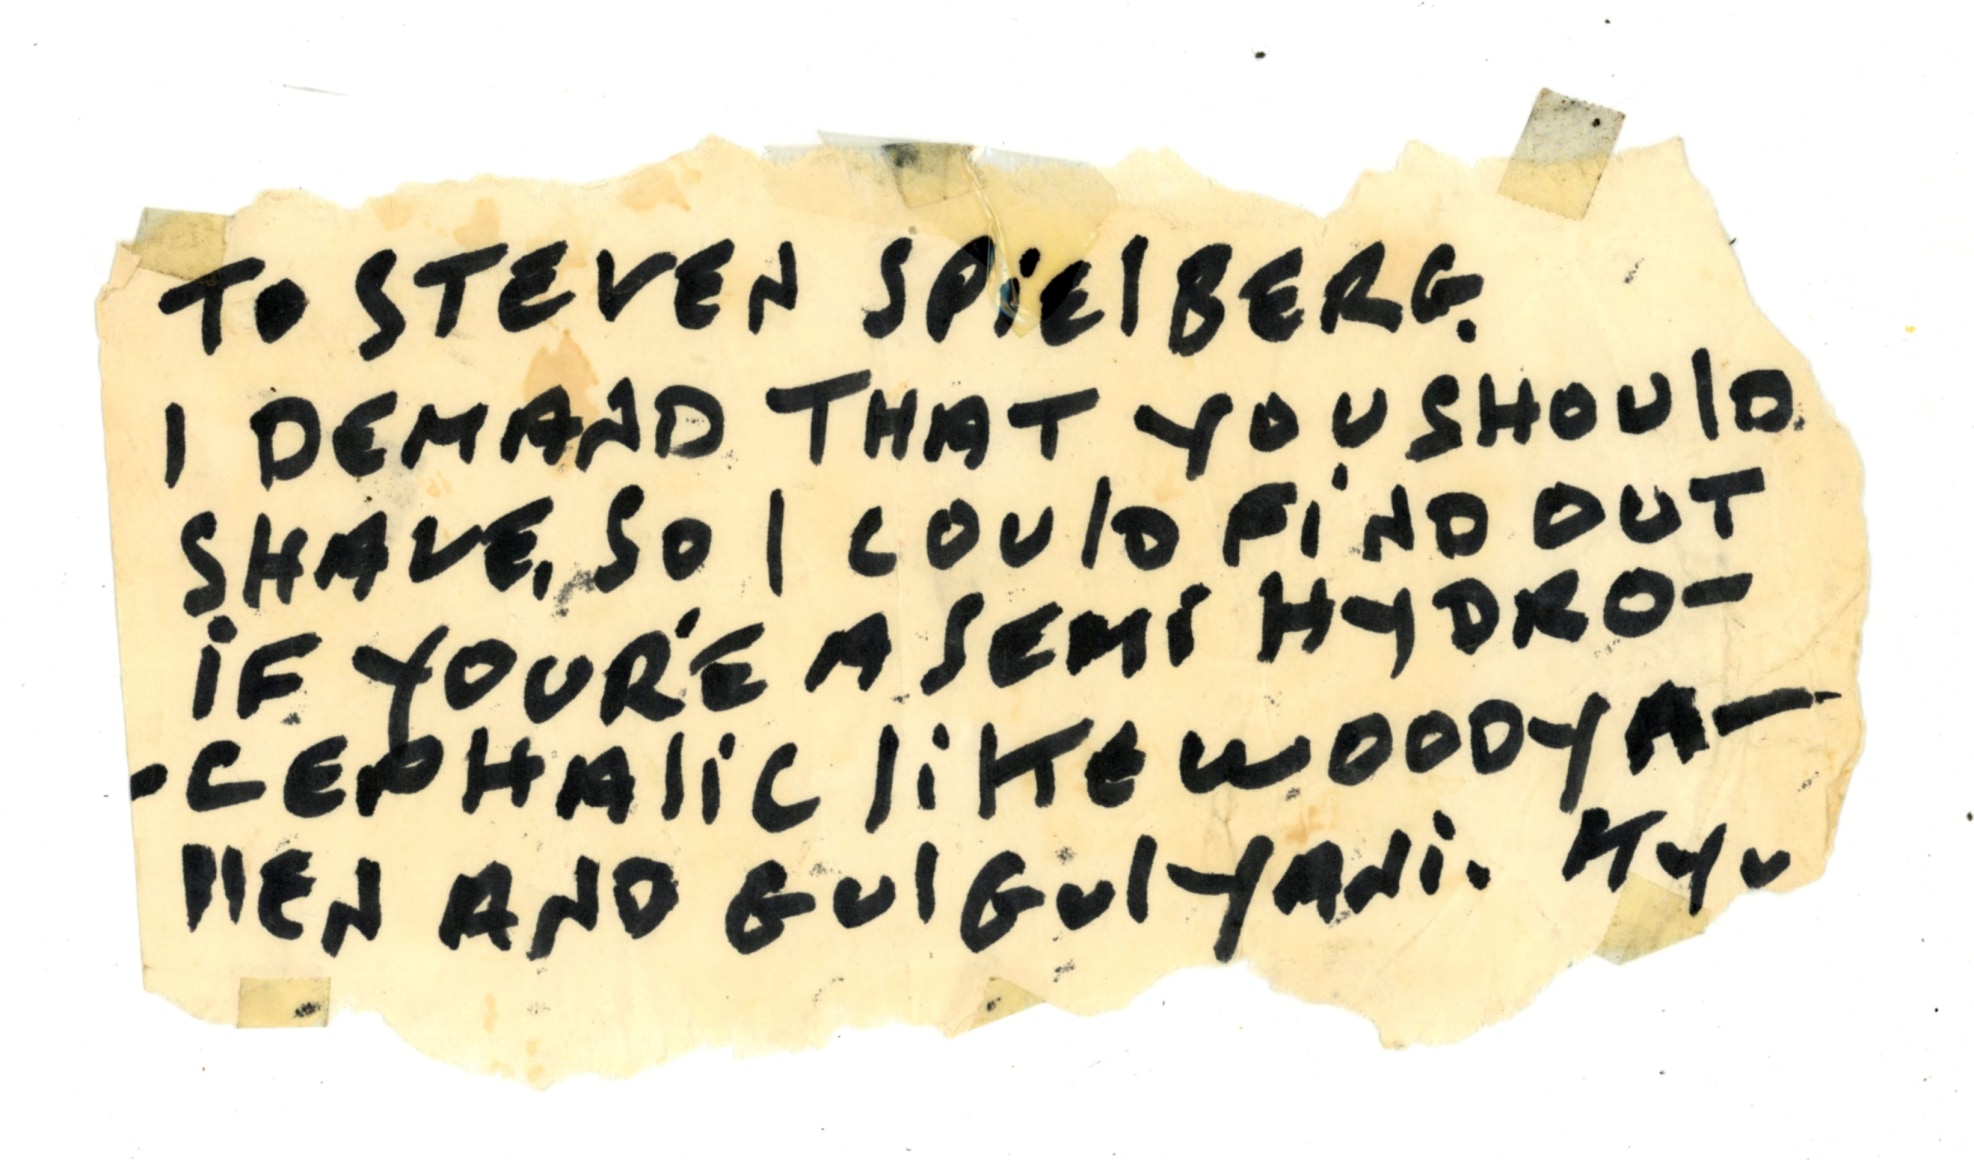 TO STEVEN SPiElBERG.
I DEMAND THAT YOU SHOUlD
SHAVE, SO I COUlD FiND OUT
iF YOUR'E A SEMI HYDRO-
-CEPHAliC liKE WOODY A-
llEN AND GUlGUlYANi. KYU